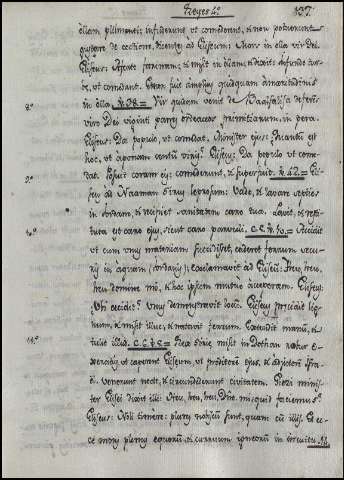 Reyes 4.º 127.
ollam pulmenti: infuderunt ut comederent, et non potuerunt
gustare de coctione, dicentes ad Eliseum: Mors in olla vir Dei.
Eliseus: Afferte farinam; et misit in ollam; et dixit: infunde tur-
be, ut comedant. Et non fuit amplius quidquam amaritudinis
8.º in olla. ℣. 38.= Vir quidam venit de Baalsalisa deferens
viro Dei viginti panes ordeaceos, frumentum in pera.
Eliseus: Da populo, ut comedat. Minister ejus: Quantum est
hoc, ut aponam centum viris? Eliseus: Da populo ut come-
dat. Posuit coram eis; comederunt, et superfuit. ℣. 42.= Eli-
9.º seus ad Naaman Sirum leprosum: Vade, et lavare septies
in Jordane, et recipiet sanitatem caro tua. Lavit, et resti-
tuta est caro ejus, sicut caro parvuli. C. 5. ℣. 10.= Accidit
10.º ut cum unus materiam succidisset, caderet ferrum secu-
ris in aquam (Jordanis); exclamavit ad Eliseum: Heu, heu,
heu domine mi, et hoc ipsum mutuo acceperam. Eliseus:
Ubi cecidit? Unus demonstravit locum. Eliseus praecidit lig-
num, et misit illuc, et natavit ferrum. Extendit manum, et
11.º tulit illud. C. 6. ℣. 5.= Rex Siriae misit in Dothan
exercitus ut caperent Eliseum,
Venerunt nocte, et circumdederunt civitatem. Giezi minis-
ter Elisei dixit illi: Heu, heu, heu, Dne. mi: quid faciemus?
Eliseus: Noli timere: plures nobiscum sunt, quam cum illis. Et ec-
ce mons plenus equorum, et curruum igneorum in circuitu